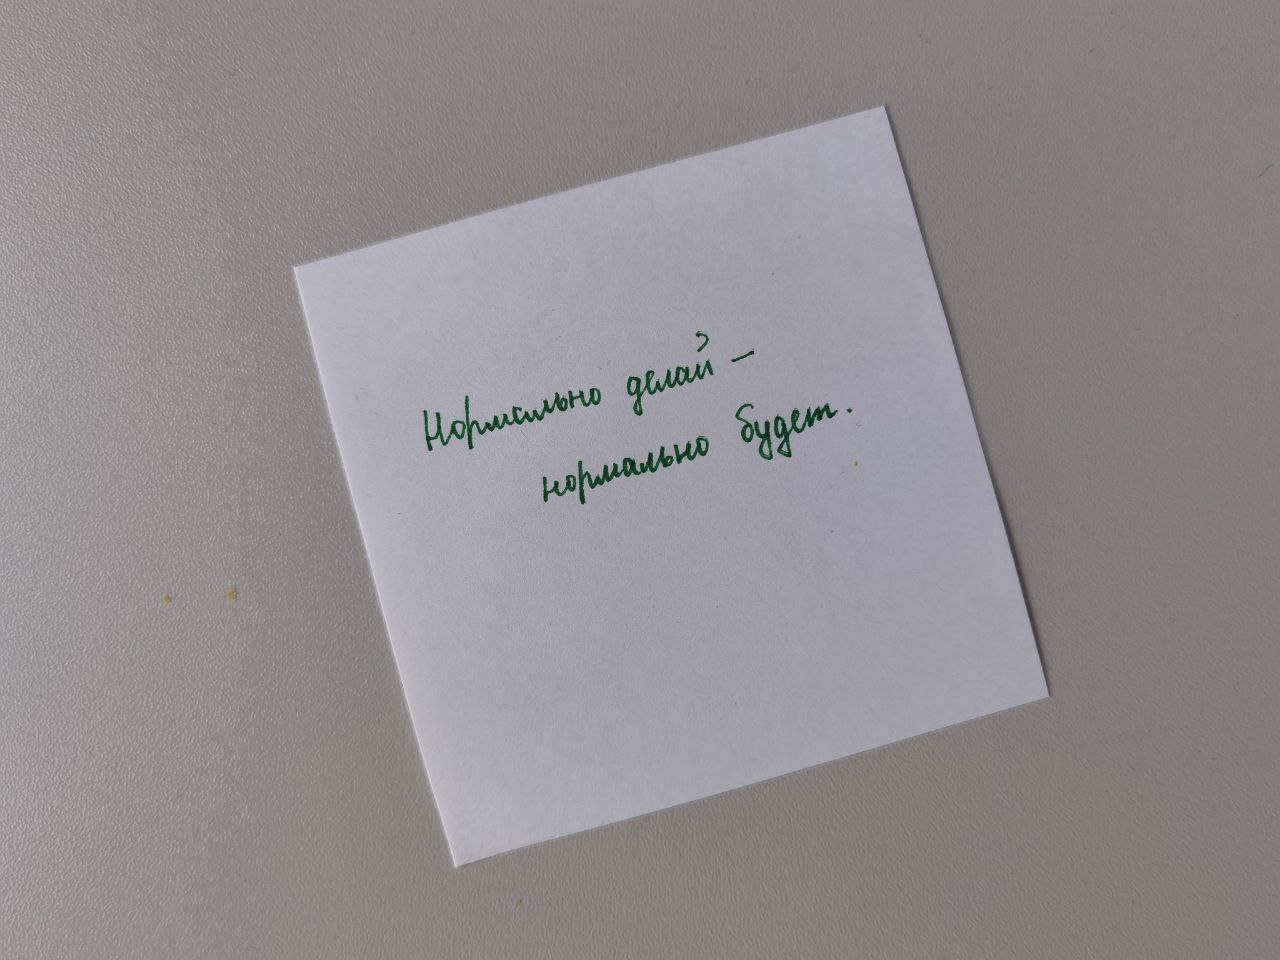 Нормально делай –
нормально будет.